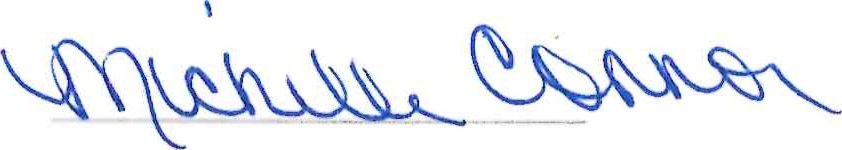 Michelle Connor